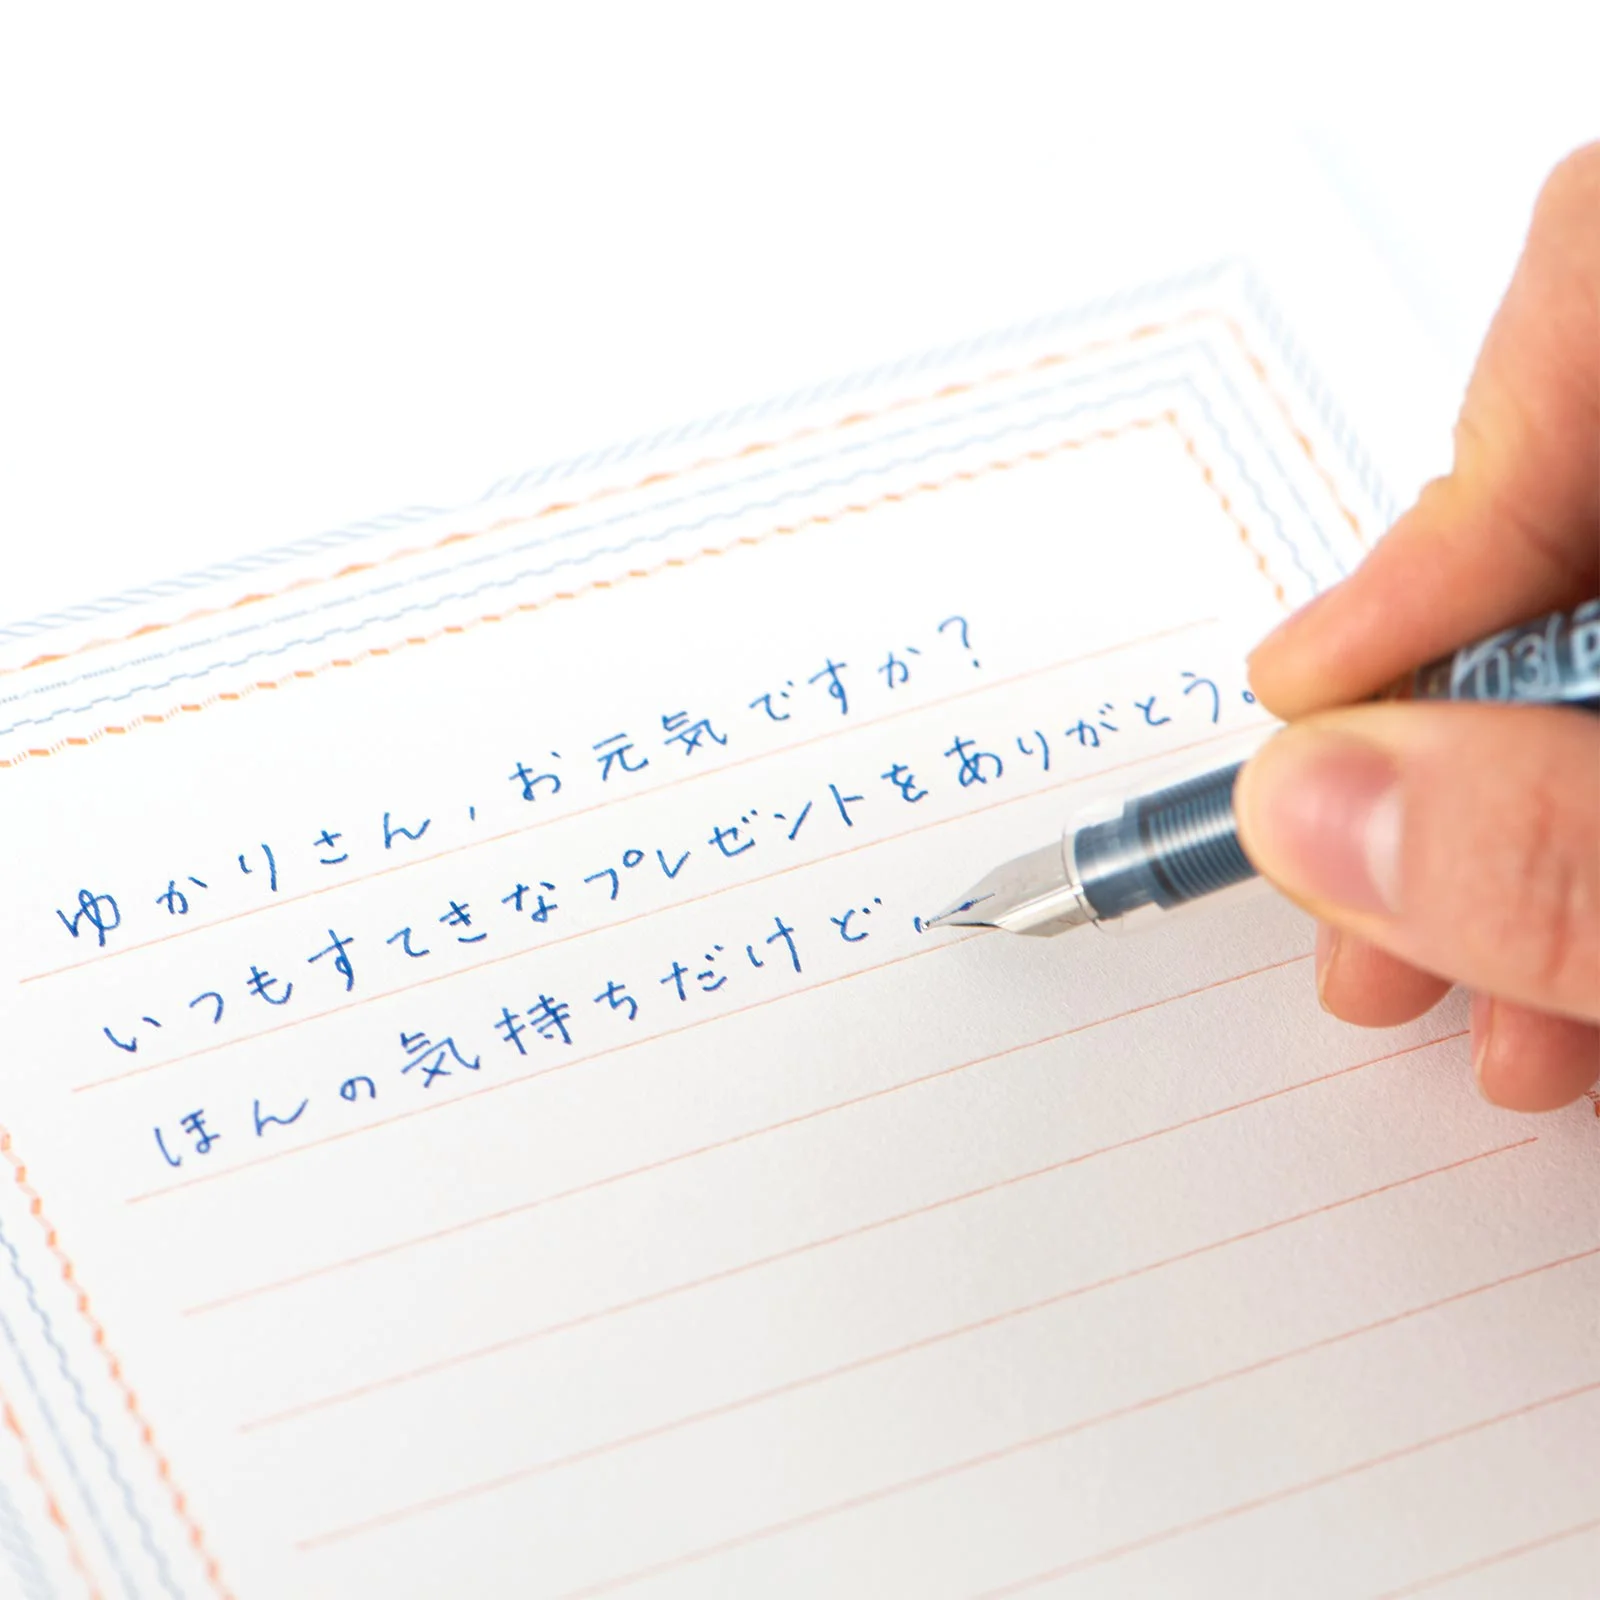 ゆかりさん、お元気ですか?
いつもすてきなプレゼントをありがとう。
ほんの気持ちだけど
03